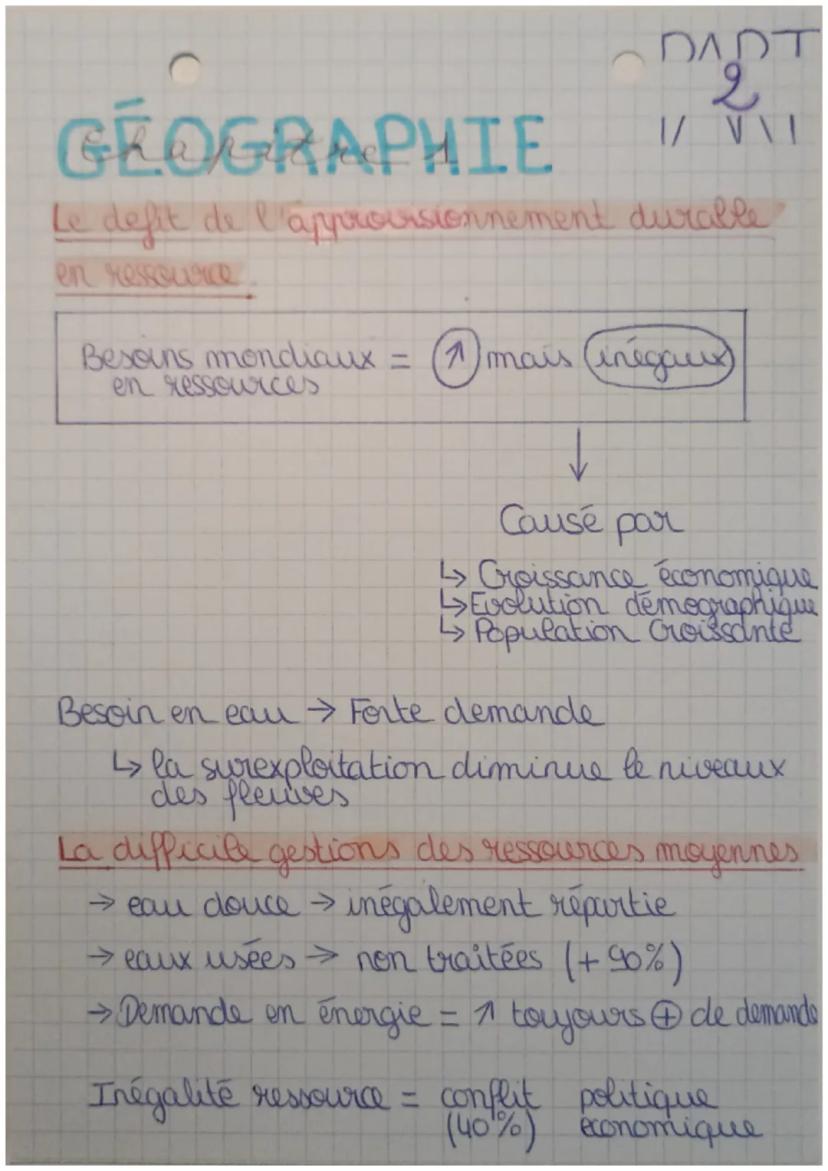 PART
2
GÉOGRAPHIE
Chapitre 1
Le defit de l'approvisionnement durable
en ressource.
Besoins mondiaux = ↑ mais inégaux
en ressources
↓
Causé par
↳ Croissance économique
↳ Evolution démographique
↳ Population Croissante
Besoin en eau → Forte demande
↳ la surexploitation diminue le niveaux
des fleuves
La difficile gestions des ressources moyennes
→ eau douce → inégalement répartie
→ eaux usées → non traitées (+90%)
→ Demande en énergie = ↗ toujours ⊕ de demande
Inégalité ressource = conflit politique
(40%) économique